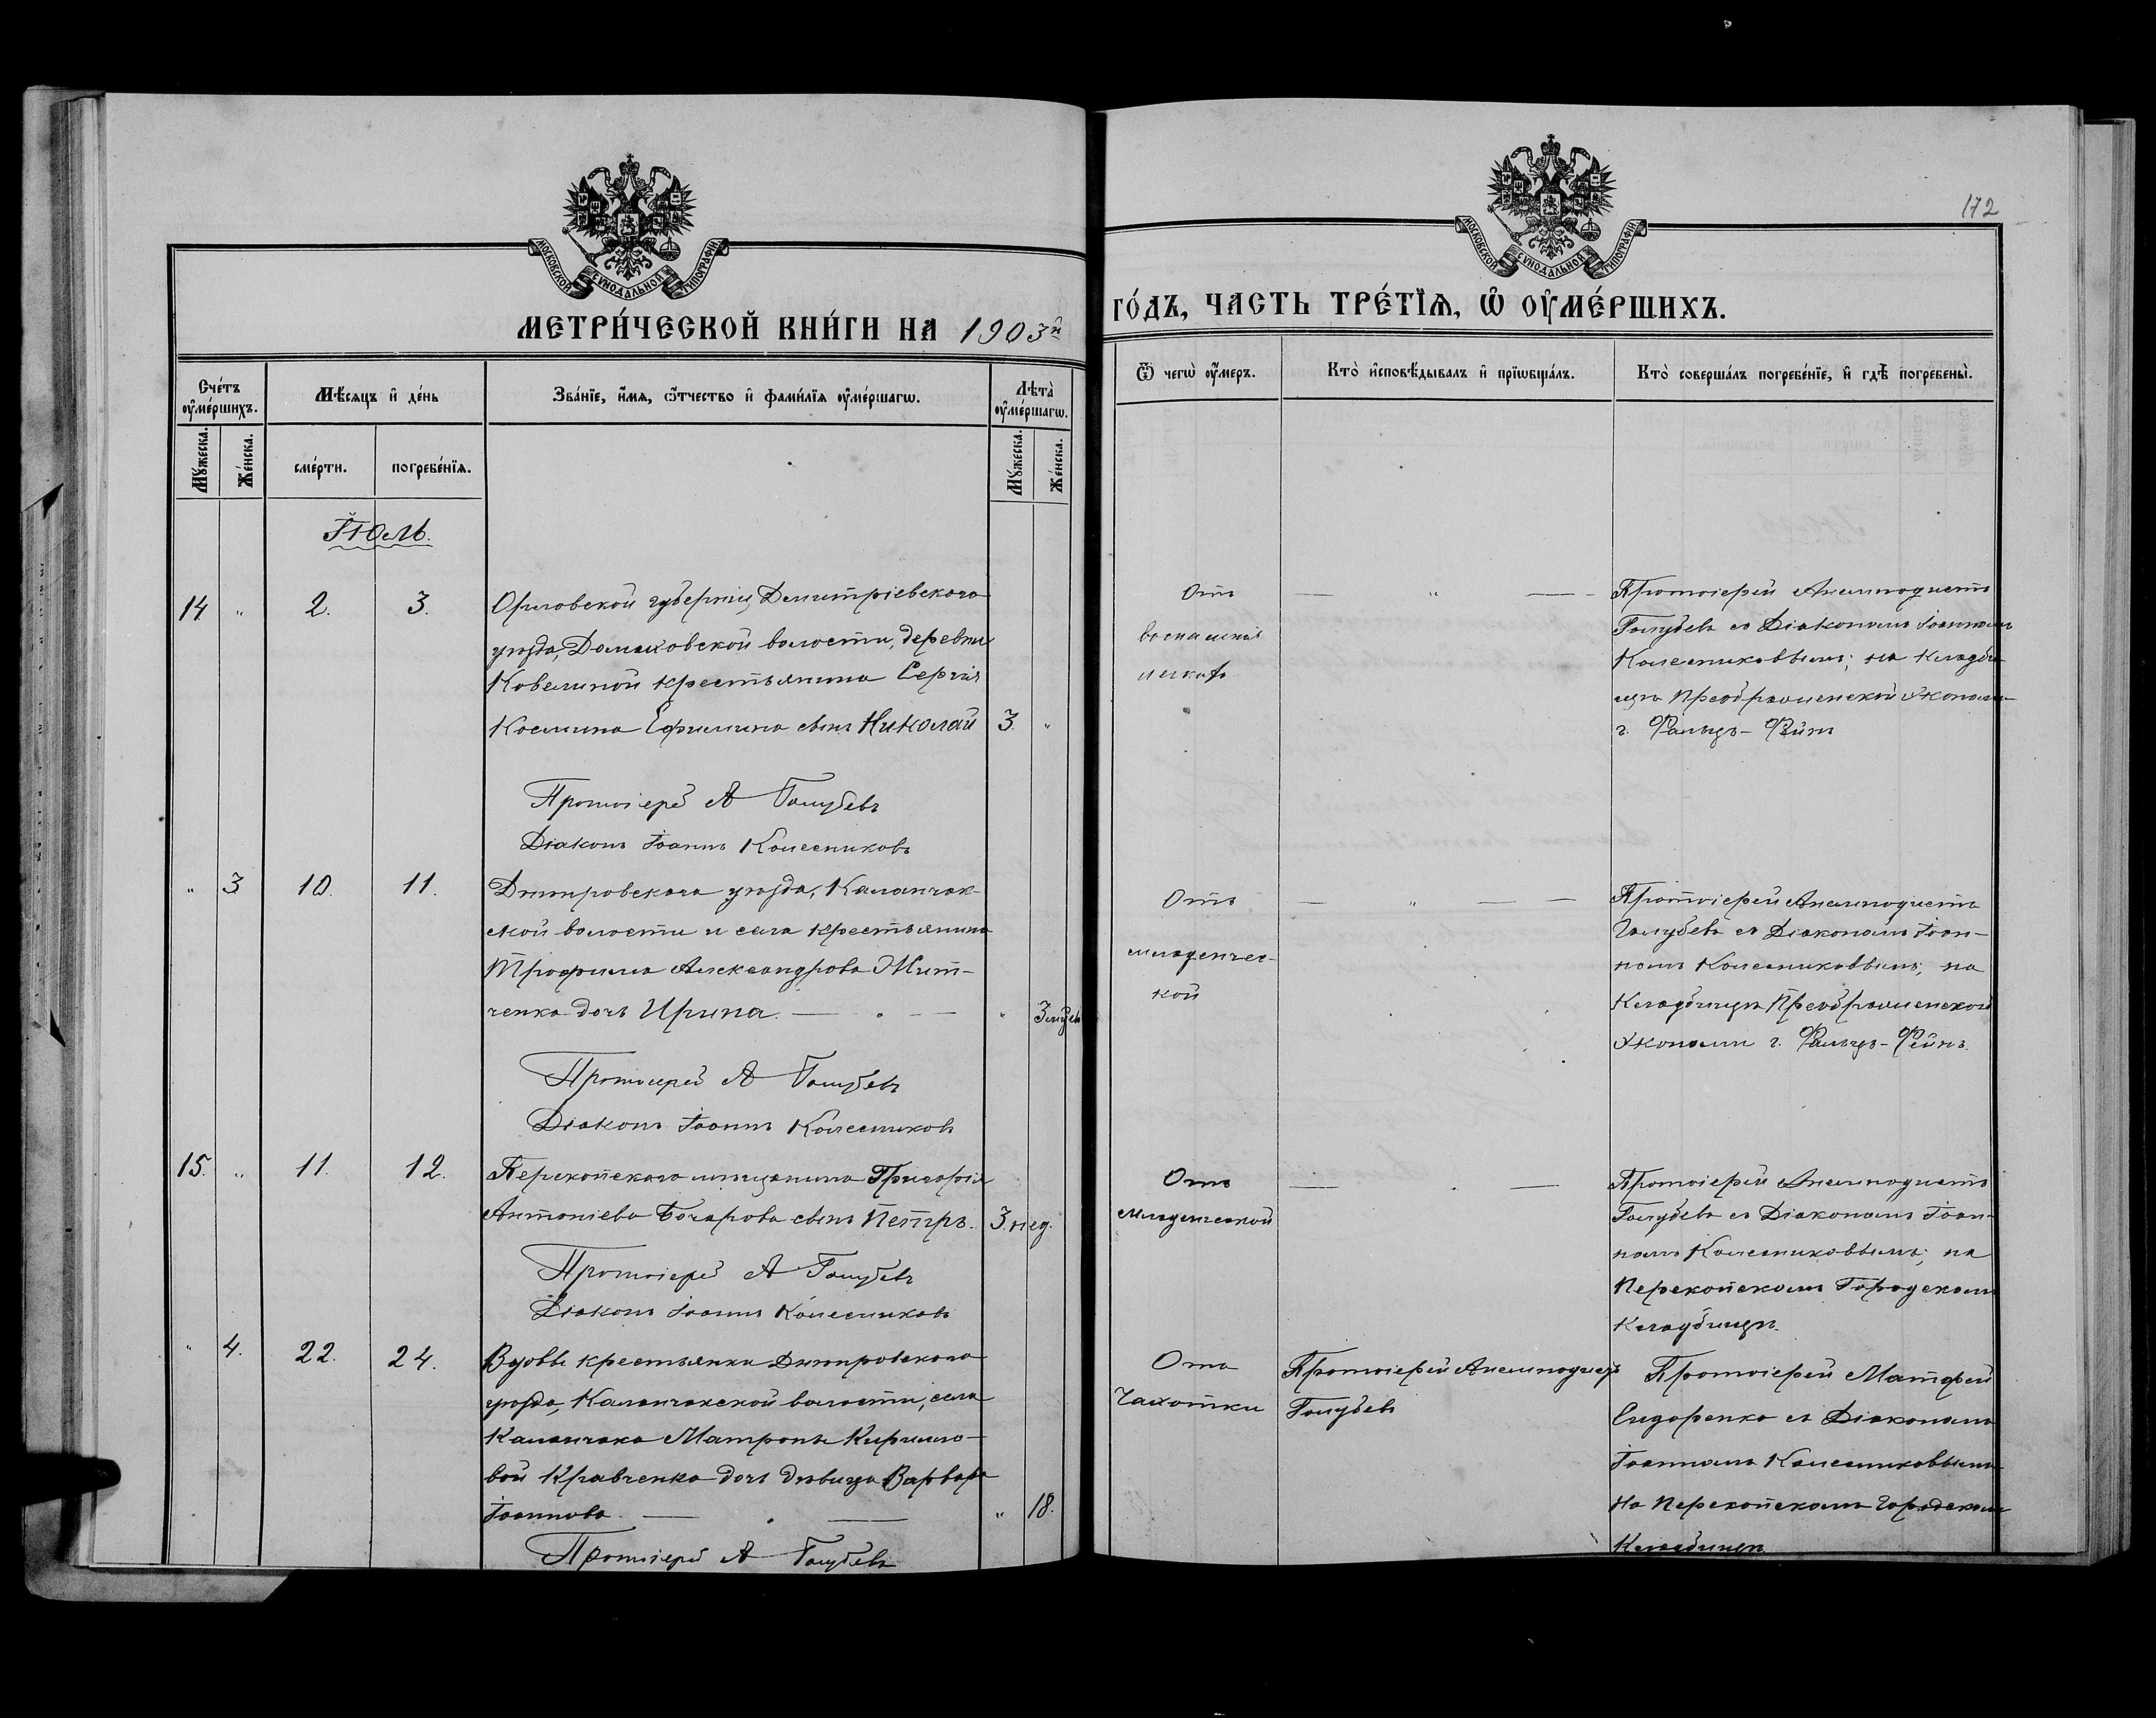 172
МОСКОВСКОЙ СУНОДАЛЬНОЙ ТИПОГРАФІИ
МОСКОВСКОЙ СУНОДАЛЬНОЙ ТИПОГРАФІИ
МЕТРИ́ЧЕСКОЙ КНИ́ГИ НА 1903й
ГО́ДЪ, ЧАСТЬ ТРЕ́ТЇѦ, Ѽ ОУ҆МЕ́РШИХЪ.
Сче́тъ оу҆ме́ршихъ.
Мꙋ́жеска.
Же́нска.
Мѣ́сяцъ и҆ де́нь
сме́рти.
погребе́нїѧ.
Зва́нїе, и҆́мѧ, ѻ҆́тчество и҆ фами́лїѧ оу҆ме́ршагѡ.
Лѣ́та оу҆ме́ршагѡ.
Мꙋ́жеска.
Же́нска.
Ѿ чегѡ̀ оу҆́меръ.
Кто̀ и҆сповѣ́дывалъ и҆ прїѡбща́лъ.
Кто̀ соверша́лъ погребе́нїе, и҆ гдѣ̀ погребены̀.
Іюль.
14 " 2. 3.
Орловской губерніи, Димитріевскаго
уѣзда, Домаховской волости, деревни
Ковелиной крестьянина Сергія
Космина Ефимина сынъ Николай 3. "
Протоіерей А Голубевъ
Діаконъ Іоаннъ Колесниковъ
Отъ
воспаленія
легкихъ
— " —
Протоіерей Анемподистъ
Голубевъ съ Діакономъ Іоанномъ
Колесниковвымъ; на кладби-
щѣ Преображенской Экономіи
г. Фальцъ-Фейнъ
" 3 10. 11.
Днѣпровскаго уѣзда, Каланчак-
ской волости и села крестьянина
Трофима Александрова Жит-
ченко дочь Ирина. — " — " 3 мѣсяц
Протоіерей А Голубевъ
Діаконъ Іоаннъ Колесниковъ
Отъ
младенчес-
кой
— " — —
Протоіерей Анемподистъ
Голубевъ съ Діакономъ Іоан-
номъ Колесниковвымъ; на
Кладбищѣ Преображенской
Экономіи г. Фальцъ-Фейнъ.
15. " 11. 12.
Перекопскаго мѣщанина Григорія
Антоніева Бочарова сынъ Петръ. 3. нед.
Протоіерей А Голубевъ
Діаконъ Іоаннъ Колесниковъ
Отъ
младенческой
— . —
Протоіерей Анемподистъ
Голубевъ съ Діакономъ Іоан-
номъ Колесниковвымъ; на
Перекопскомъ Городскомъ
Кладбищѣ.
" 4. 22. 24.
Вдовы крестьянки Днѣпровскаго
уѣзда, Каланчакской волости, села
Каланчака Матроны Кирилло-
вой Кравченко дочь дѣвица Варвара
Іоаннова. — . — " 18.
Протоіерей А Голубевъ
Отъ
Чахотки
Протоіерей Анемподистъ
Голубевъ
Протоіерей Матфей
Сидоренко съ Діакономъ
Іоанномъ Колесниковвымъ
На Перекопскомъ Городскомъ
Кладбищѣ